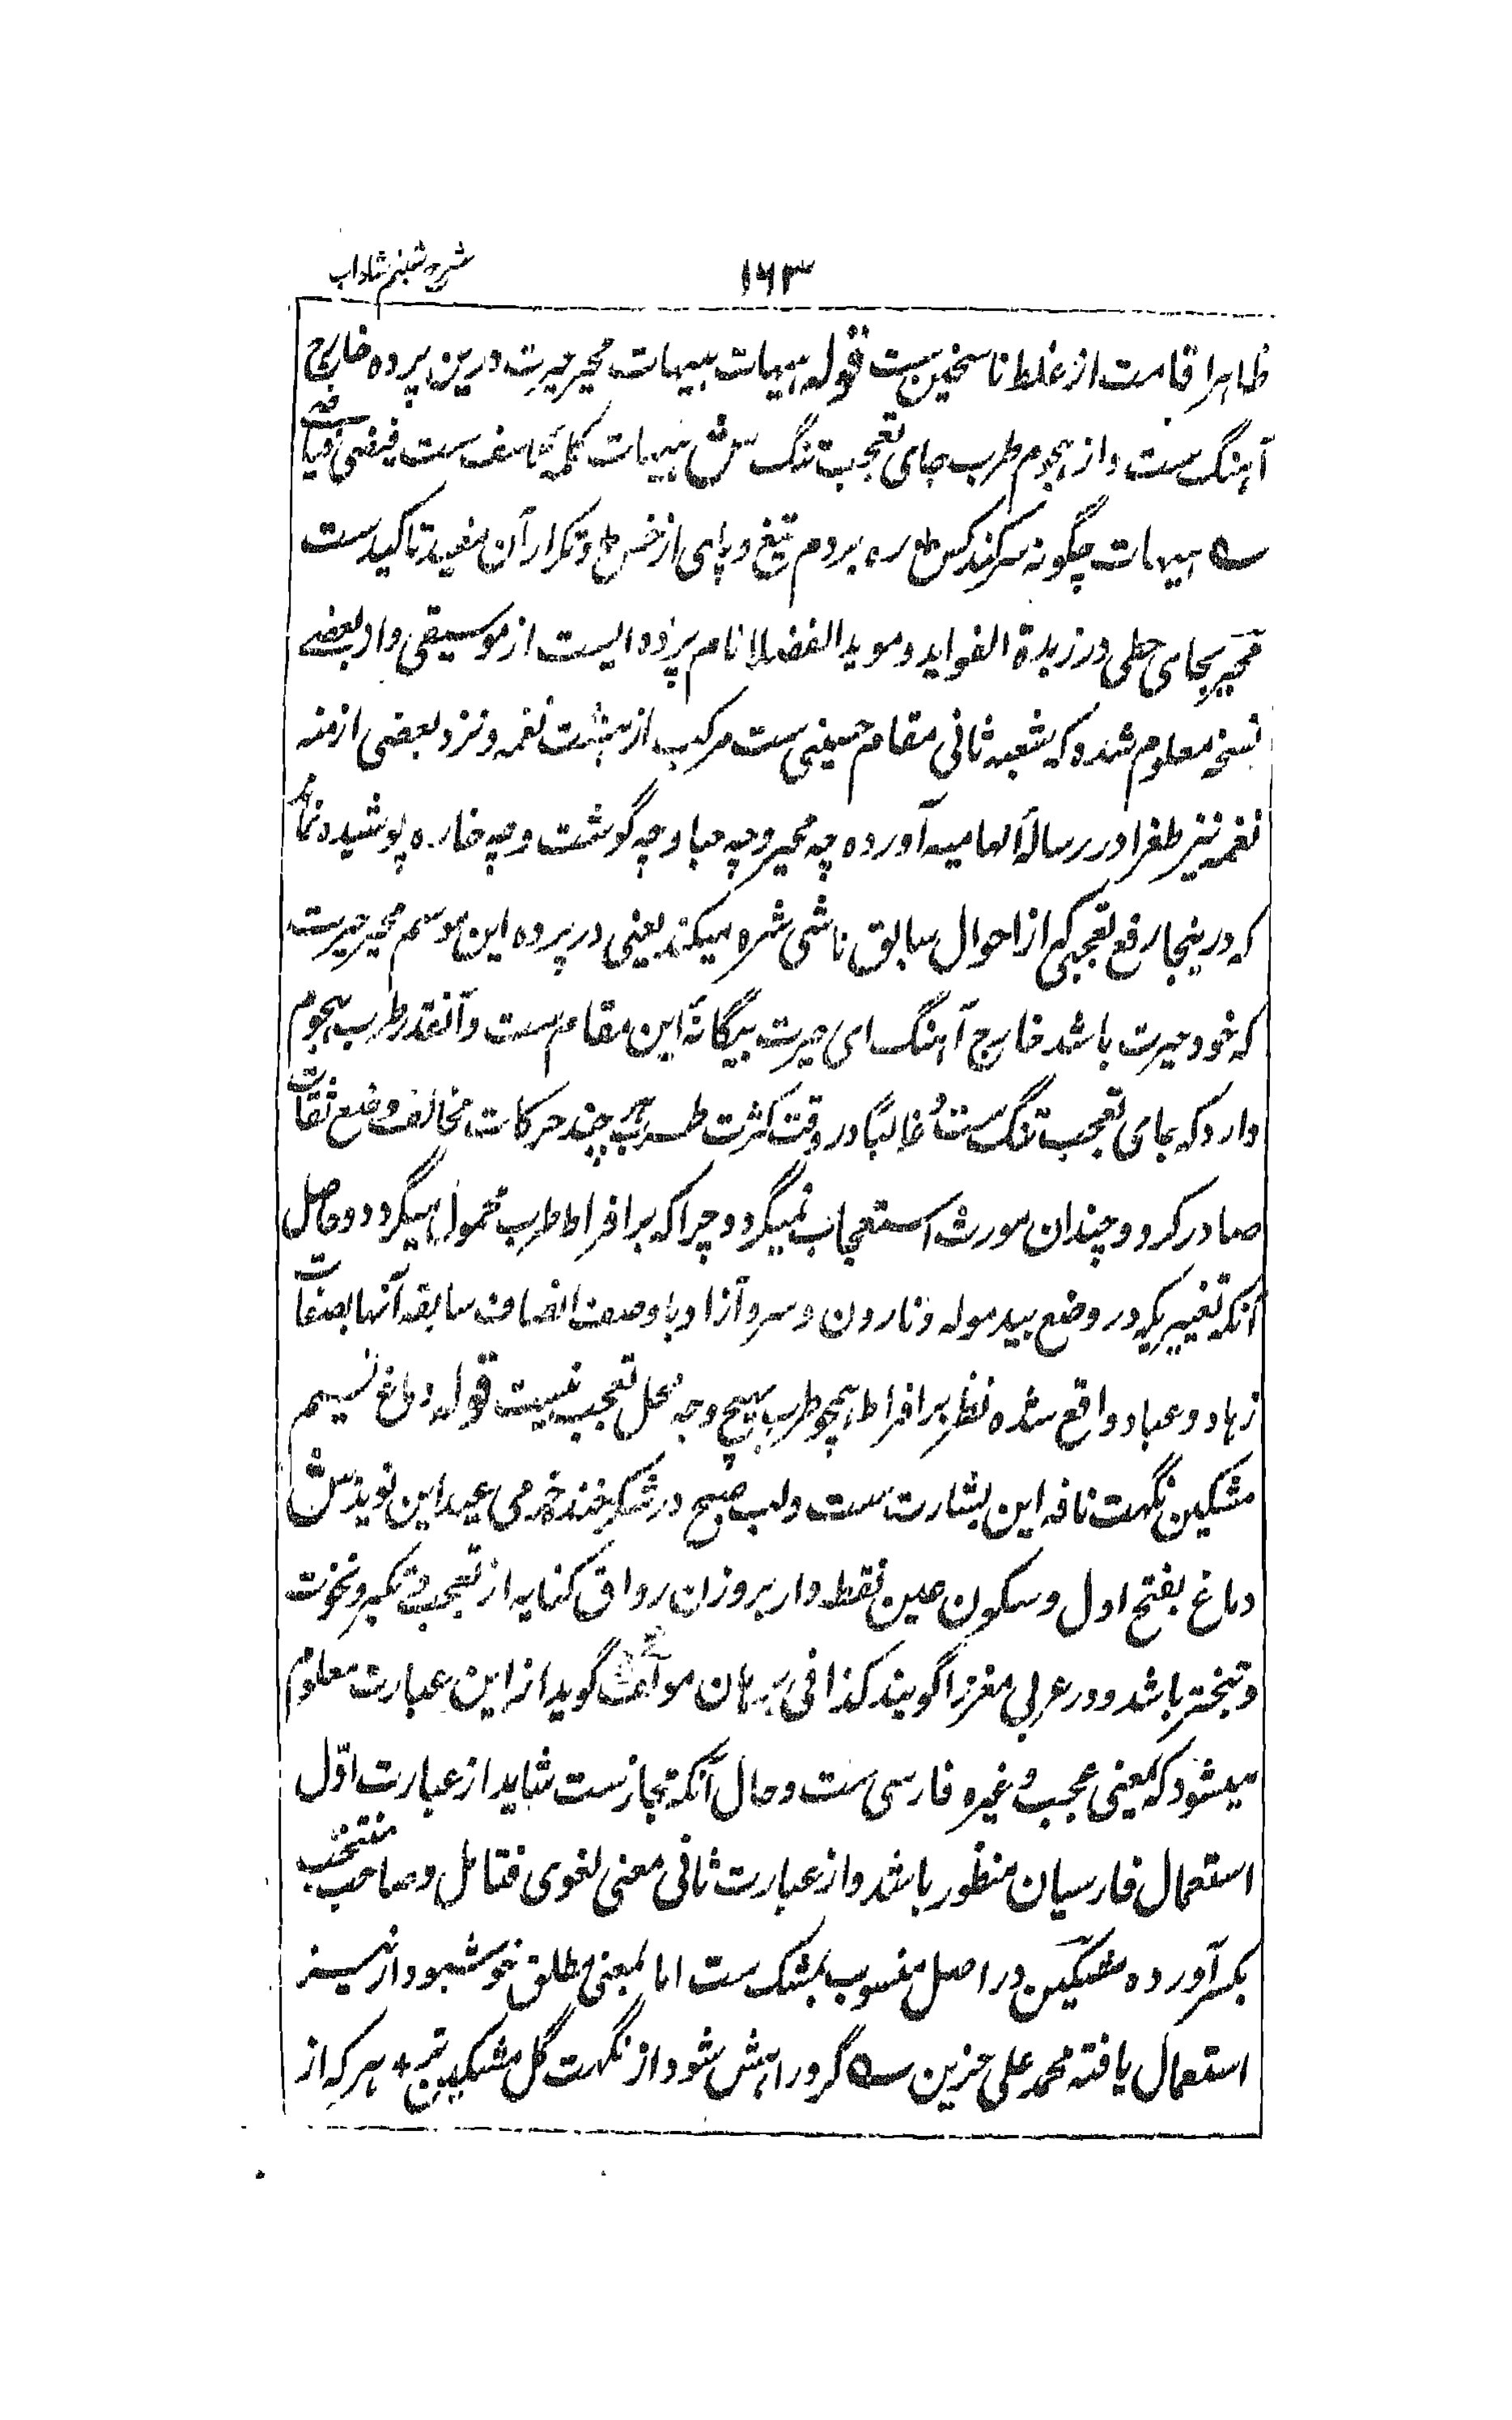 ۱۶۳
شرح شبنم شاداب
ظاهرا قامت از غلط ناسخین ست قوله هیهات هیهات محیر حیرت درین پرده خارج
آهنگ ست و از هجوم طرب جای تعجب تنگ ش هیهات کلمهٔ تاسف ست فیضی فیاضی
ے هیهات چگونه سر کند کس + ره بر دم تیغ و پای از خس + و تکرار آن مفید تاکید ست
محیر بجای حطی در زبدة الفواید و موید الفضلا نام پرده ایست از موسیقی و از بعضے
نسخه معلوم شده که شعبه ثانی مقام حسینی ست مرکب از هشت نغمه و نزد بعضی از منه
نغمه نیز طغرا در رسالهٔ الهامیه آورده چه محیر و چه صبا و چه گوشت و چه خاره پوشیده نماند
که درینجا رفع تعجبی که از احوال سابق ناشی شده میکند یعنی در پرده این موسم محیر حیرت
که خود حیرت باشد خارج آهنگ ای حیرت بیگانهٔ این مقام ست و آنقدر طرب هجوم
دارد که جای تعجب تنگ ست و غالبا در وقت کثرت طرب هر چند حرکات مخالف وضع ثقات
صادر گردد چندان مورث استعجاب نمیگردد چرا که بر افراط طرب محمول میگردد و حاصل
آنکه تغییریکه در وضع بید موله و نارون و سرو آزاد با وصف اتصاف سابقه آنها بصفات
زهاد و عباد واقع شده نظر بر افراط همچو طرب هیچ وجه محل تعجب نیست قوله دماغ نسیم
مشکین نگهت نافه این بشارت ست و لب صبح در شکر خند خرمی عید این نوید ش
دماغ بفتح اول و سکون غین نقطه دار بر وزن رواق کنایه از تعجب و تکبر و نخوت
و تبختر باشد و در عربی مغز را گویند کذا فی برهان مولف گوید از این عبارت معلوم
میشود که بمعنی عجب و غیره فارسی ست و حال آنکه مجاز ست شاید از عبارت اوّل
استعمال فارسیان منظور باشد و از عبارت ثانی معنی لغوی فتامل و صاحب منتخب
بکسر آورده مشکین در اصل منسوب بمشک ست اما بمعنی مطلق خوشبودار نیز
استعمال یافته محمد علی حزین ے گر در اتش شود از نگهت گل مشکین تر + هر که از